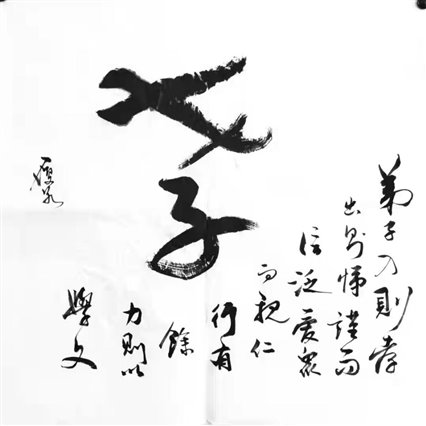 孝
弟子入則孝
出則悌謹而
信泛愛眾
而親仁
行有
餘
力則以
學文